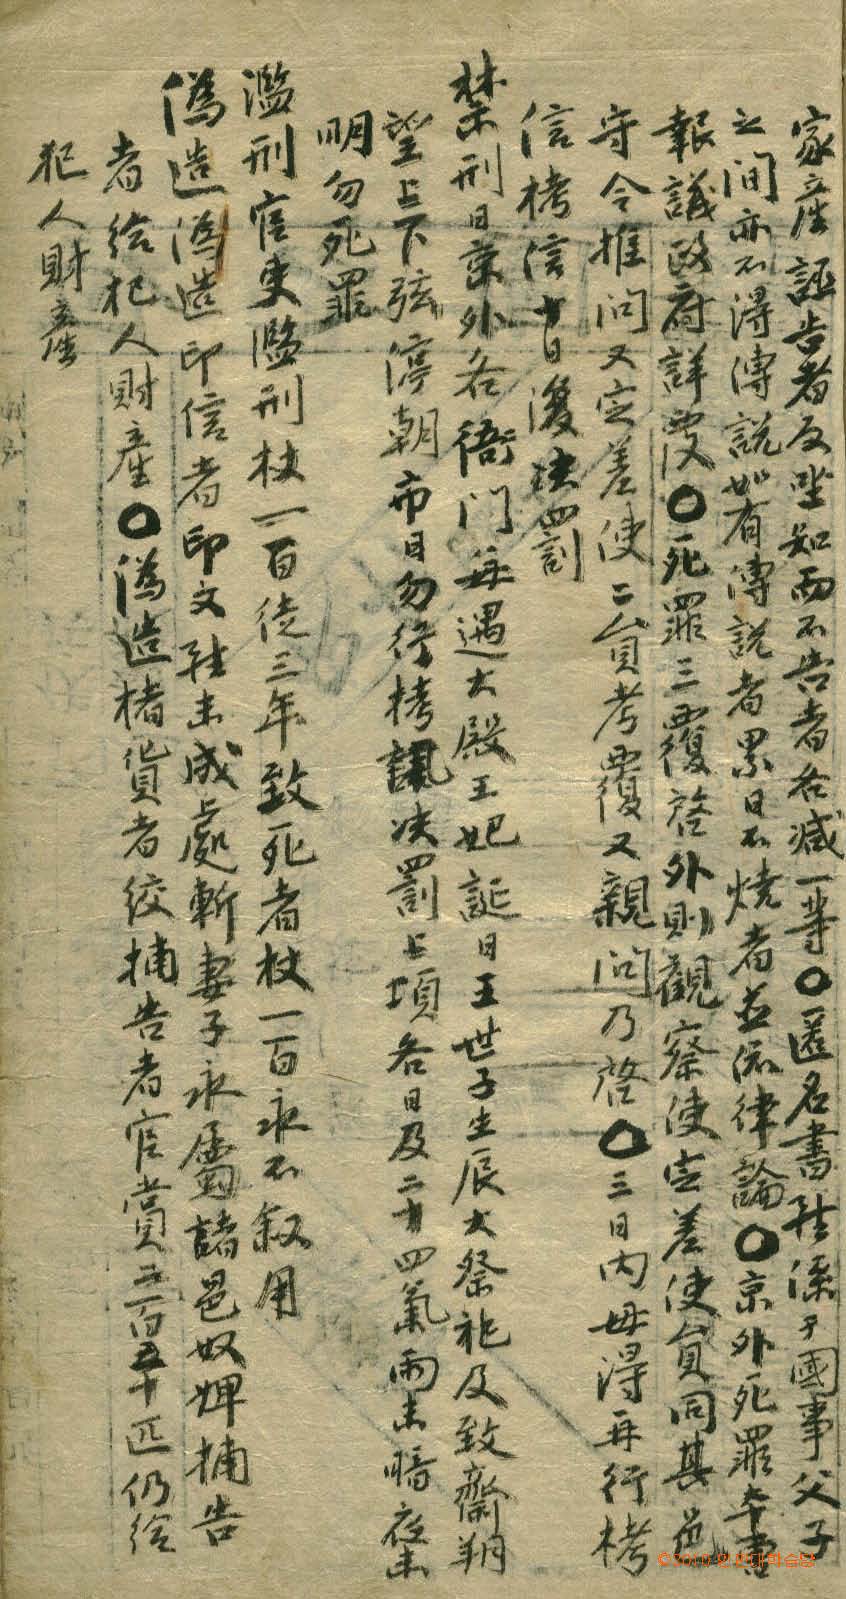 家産誣告者反坐知而不告者各減一等〇匿名書雖係于國事父子
之間亦不得傳說如有傳說者累日不燒者並依律論〇京外死罪本曹
報議政府詳覆〇死罪三覆啓外則觀察使定差使員同其邑
守令推問又定差使二員考覆又親問乃啓〇三日內毋得再行栲
信栲信十日後決罰
禁刑日京外各衙門每遇大殿王妃誕日王世子生辰大祭祀及致齋朔
望上下弦停朝市日勿行栲訊決罰上項各日及二十四氣雨未晴夜未
明勿死罪
濫刑官吏濫刑杖一百徒三年致死者杖一百永不叙用
僞造僞造印信者印文雖未成處斬妻子永屬諸邑奴婢捕告
者給犯人財産〇僞造楮貨者絞捕告者官賞二百五十匹仍給
犯人財産